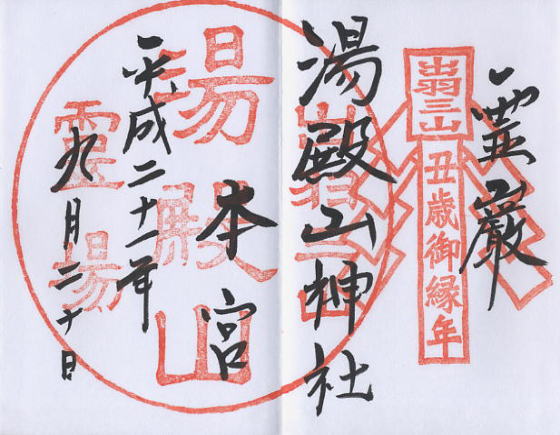 霊巌
出羽三山
丑歳御縁年
湯殿山神社
本宮
平成二十一年
九月二十日
出羽三山
湯殿山
靈場